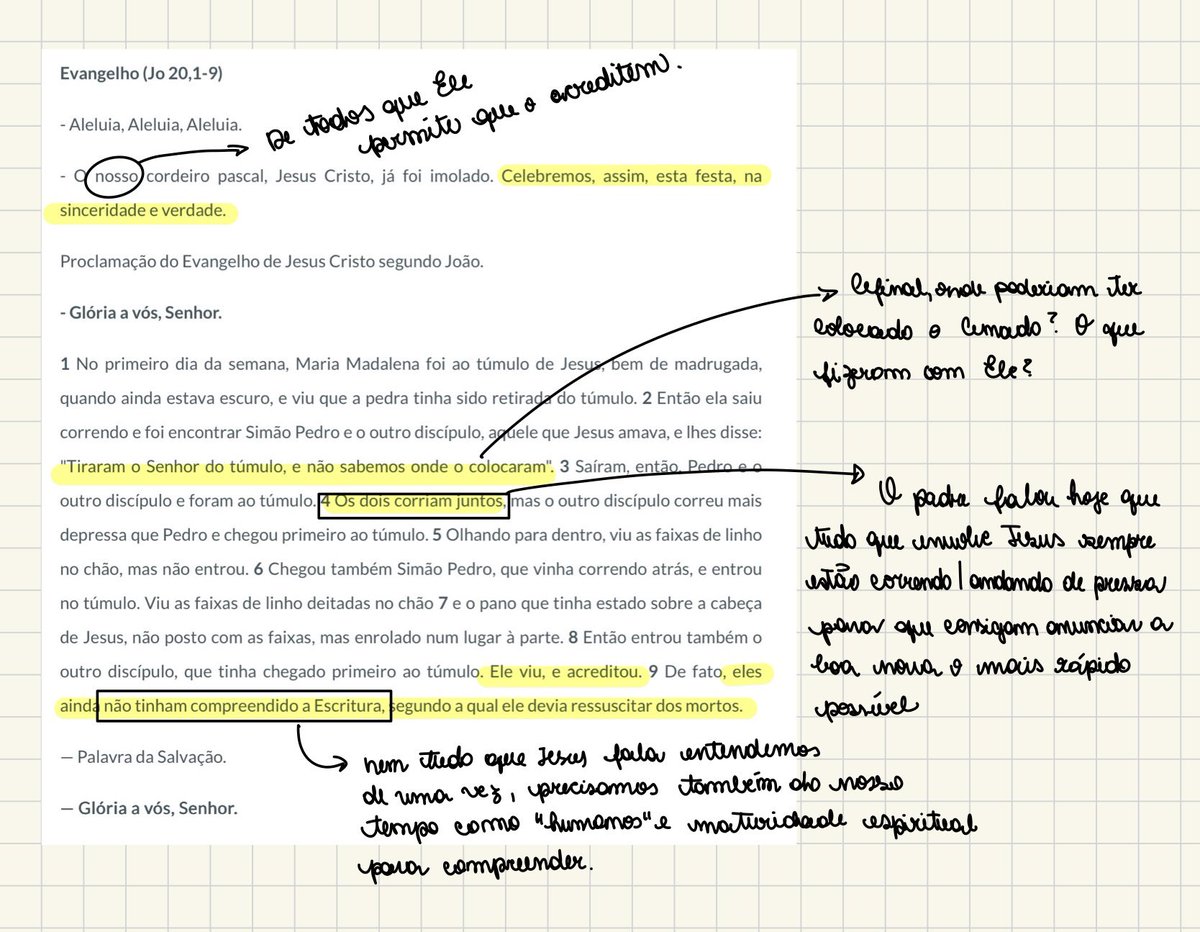 Evangelho (Jo 20,1-9)
- Aleluia, Aleluia, Aleluia.
De todos que Ele
permite que o acreditem.
- O nosso cordeiro pascal, Jesus Cristo, já foi imolado. Celebremos, assim, esta festa, na
sinceridade e verdade.
Proclamação do Evangelho de Jesus Cristo segundo João.
- Glória a vós, Senhor.
1 No primeiro dia da semana, Maria Madalena foi ao túmulo de Jesus, bem de madrugada,
quando ainda estava escuro, e viu que a pedra tinha sido retirada do túmulo. 2 Então ela saiu
correndo e foi encontrar Simão Pedro e o outro discípulo, aquele que Jesus amava, e lhes disse:
"Tiraram o Senhor do túmulo, e não sabemos onde o colocaram". 3 Saíram, então, Pedro e o
outro discípulo e foram ao túmulo. 4 Os dois corriam juntos, mas o outro discípulo correu mais
depressa que Pedro e chegou primeiro ao túmulo. 5 Olhando para dentro, viu as faixas de linho
no chão, mas não entrou. 6 Chegou também Simão Pedro, que vinha correndo atrás, e entrou
no túmulo. Viu as faixas de linho deitadas no chão 7 e o pano que tinha estado sobre a cabeça
de Jesus, não posto com as faixas, mas enrolado num lugar à parte. 8 Então entrou também o
outro discípulo, que tinha chegado primeiro ao túmulo. Ele viu, e acreditou. 9 De fato, eles
ainda não tinham compreendido a Escritura, segundo a qual ele devia ressuscitar dos mortos.
— Palavra da Salvação.
— Glória a vós, Senhor.
Afinal, onde poderiam ter
colocado o Amado? O que
fizeram com Ele?
O padre falou hoje que
tudo que envolve Jesus sempre
estão correndo/andando de pressa
para que consigam anunciar a
boa nova o mais rápido
possível
nem tudo que Jesus fala entendemos
de uma vez, precisamos também do nosso
tempo como "humanos" e maturidade espiritual
para compreender.